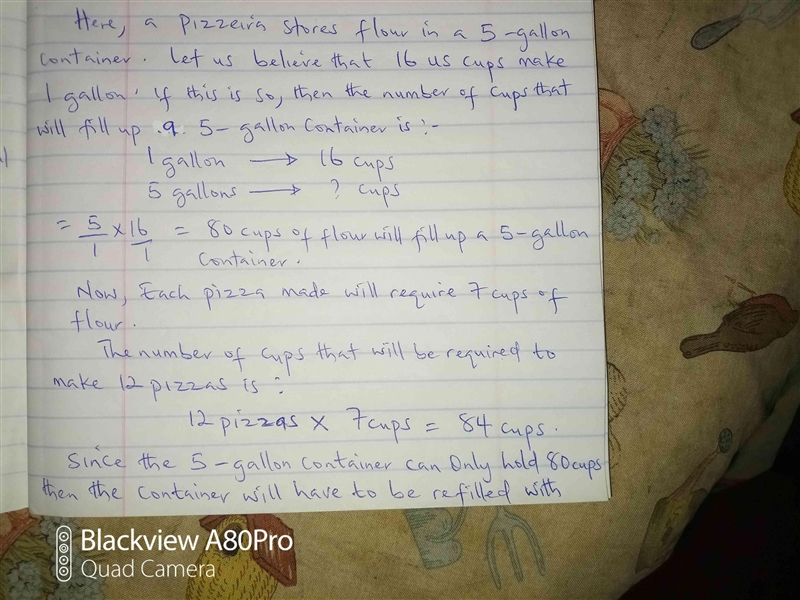 Here, a pizzeira stores flour in a 5-gallon
container. Let us believe that 16 us cups make
1 gallon. if this is so, then the number of cups that
will fill up a 5-gallon container is :-
1 gallon → 16 cups
5 gallons → ? cups
= 5/1 × 16/1 = 80 cups of flour will fill up a 5-gallon
container.
Now, Each pizza made will require 7 cups of
flour.
The number of cups that will be required to
make 12 pizzas is :
12 pizzas × 7 cups = 84 cups.
Since the 5-gallon container can Only hold 80 cups
then the container will have to be refilled with
Blackview A80Pro
Quad Camera